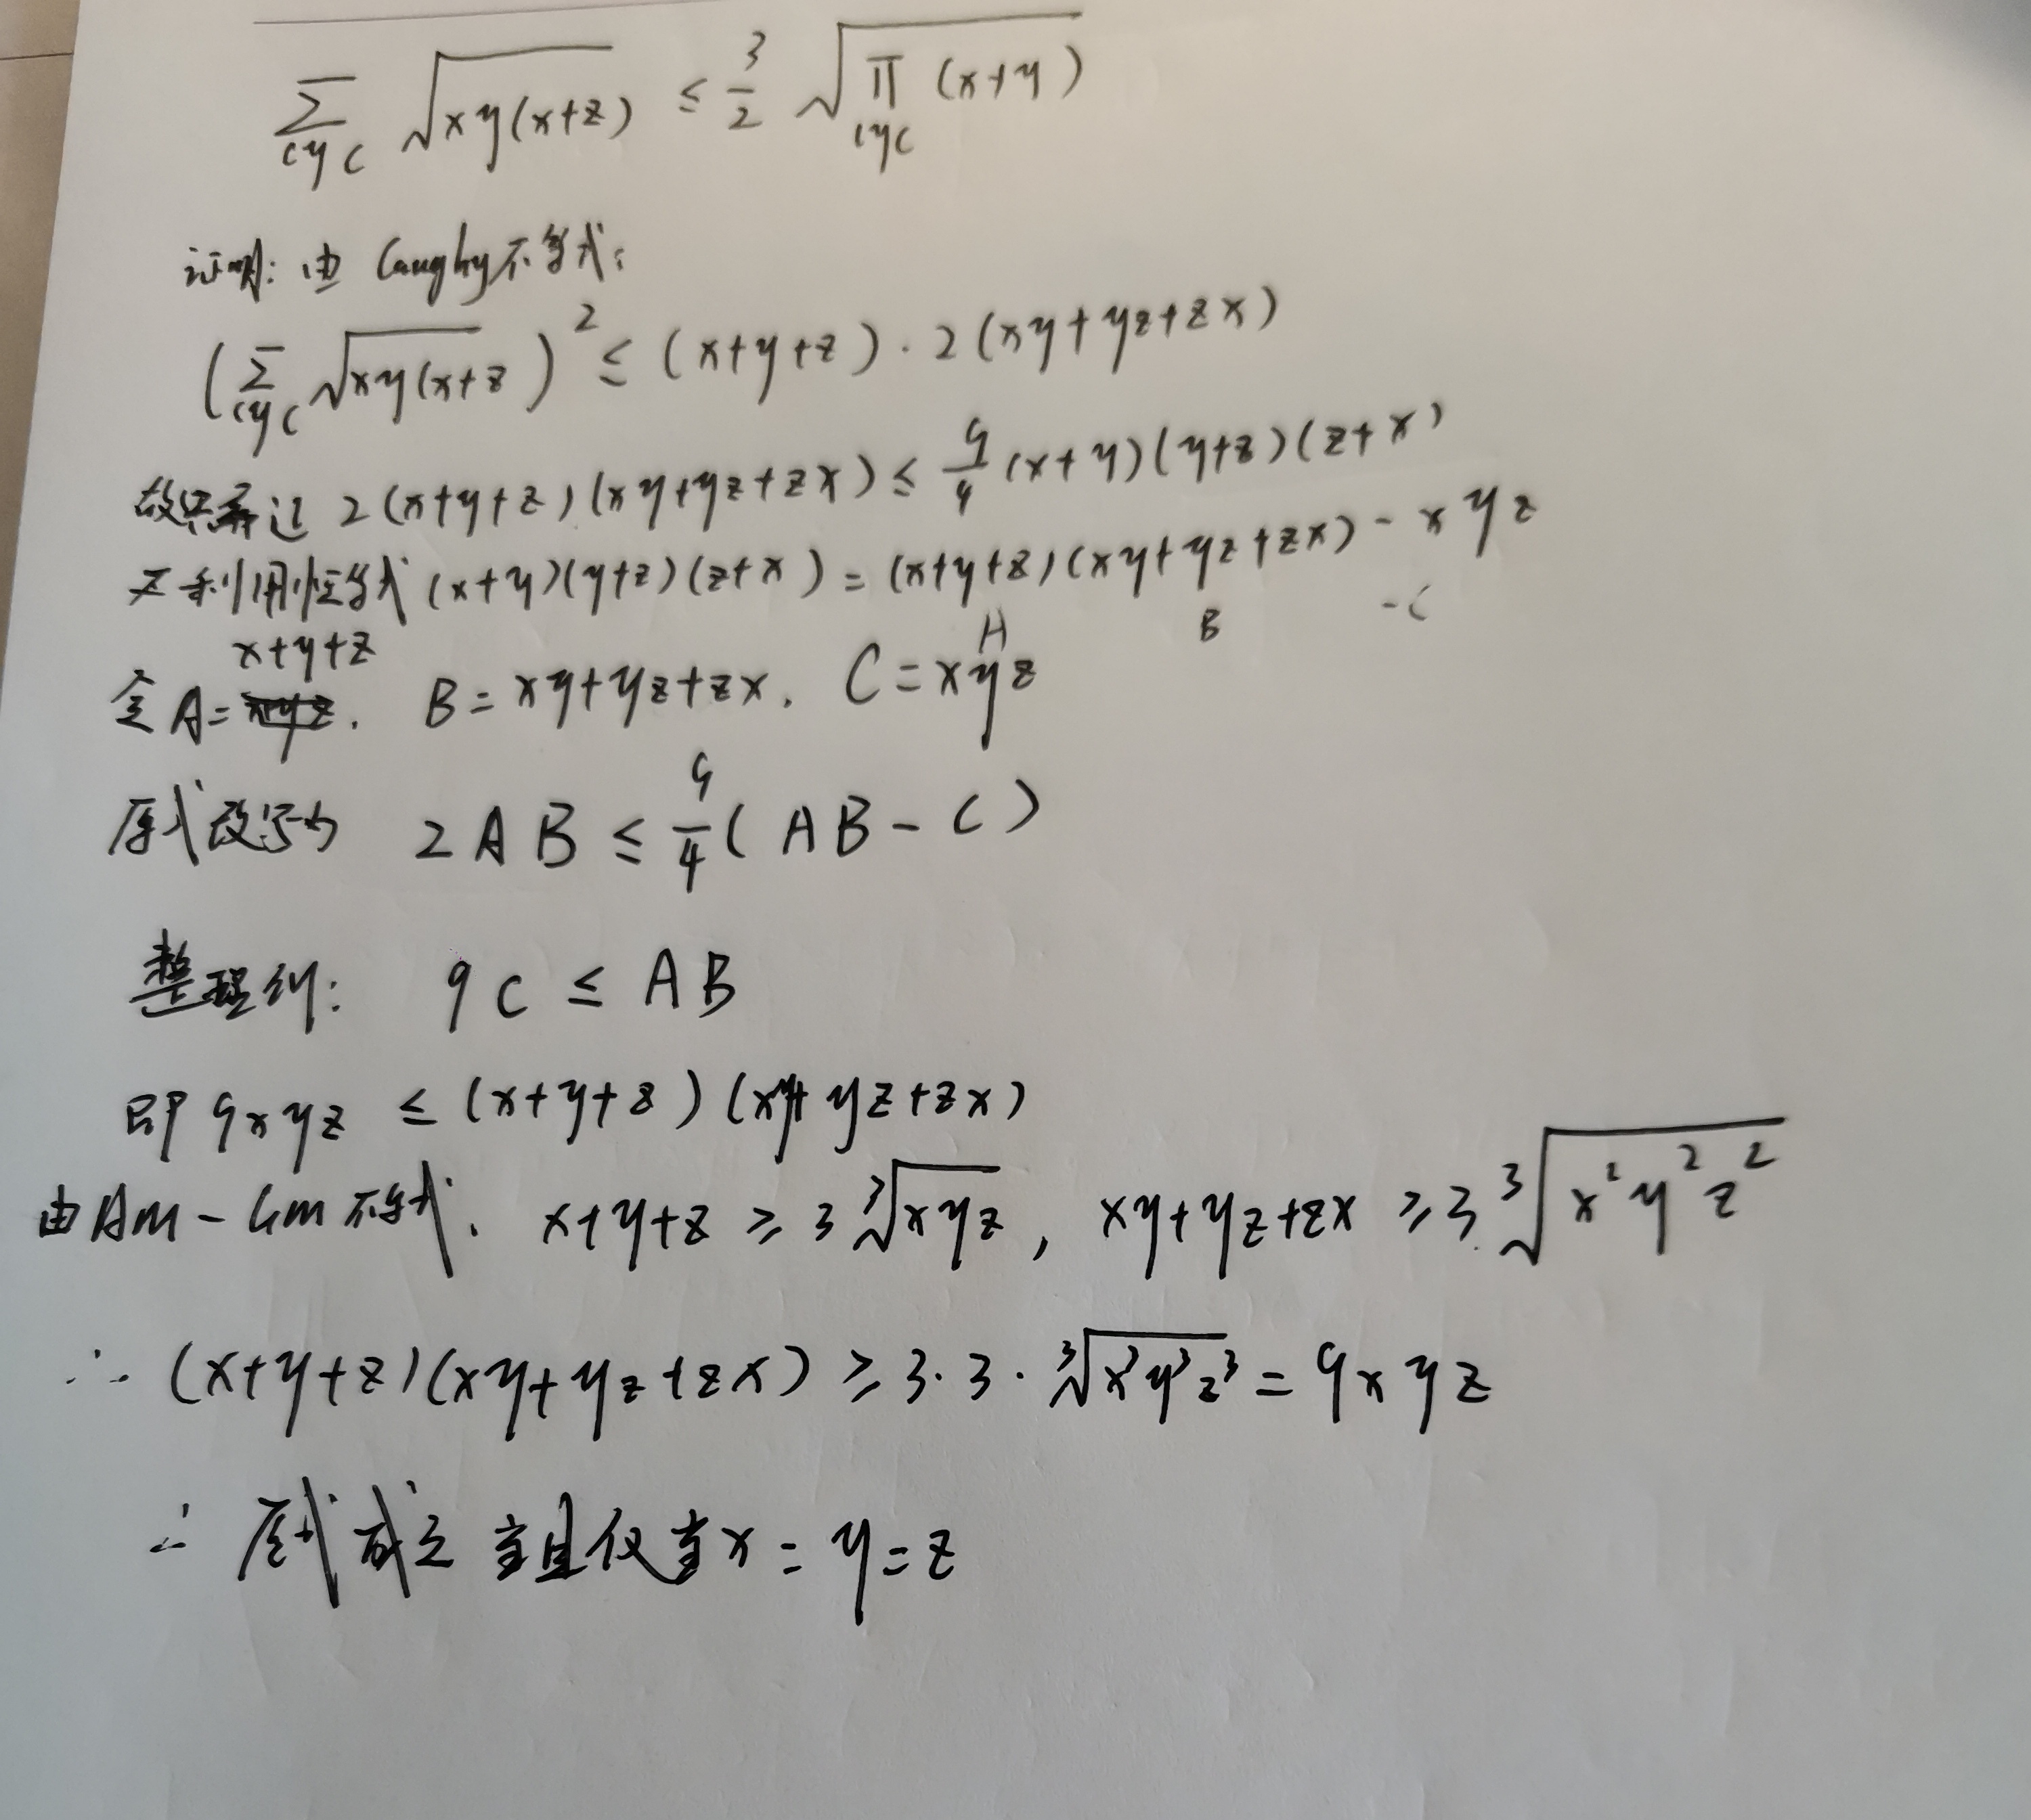 ∑_{cyc} √(xy(x+z)) ≤ 3/2 √(∏_{cyc} (x+y))
证明: 由 Cauchy不等式:
(∑_{cyc} √(xy(x+z)))² ≤ (x+y+z)·2(xy+yz+zx)
故只需证 2(x+y+z)(xy+yz+zx) ≤ 9/4 (x+y)(y+z)(z+x)
又利用恒等式 (x+y)(y+z)(z+x) = (x+y+z)(xy+yz+zx) - xyz
A B -C
令 A = x+y+z. B = xy+yz+zx. C = xyz
原式改写为 2AB ≤ 9/4 (AB - C)
整理得: 9C ≤ AB
即 9xyz ≤ (x+y+z)(xy+yz+zx)
由 Am-Gm 不等式. x+y+z ≥ 3 ∛(xyz), xy+yz+zx ≥ 3 ∛(x²y²z²)
∴ (x+y+z)(xy+yz+zx) ≥ 3·3·∛(x³y³z³) = 9xyz
∴ 原式成立 当且仅当 x = y = z